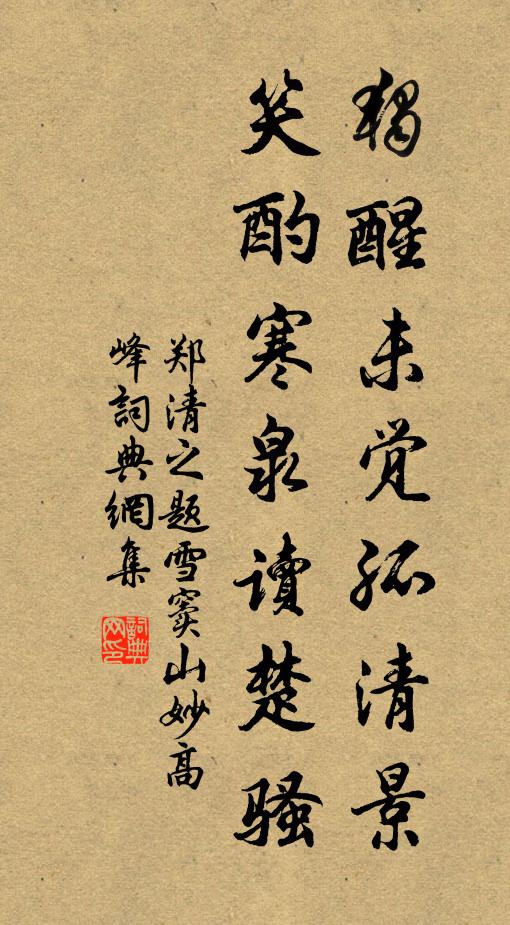 独醒未觉孤清景
笑酌寒泉读楚骚
郑清之题雪窦山妙高
峰詞典網集
詞典网印